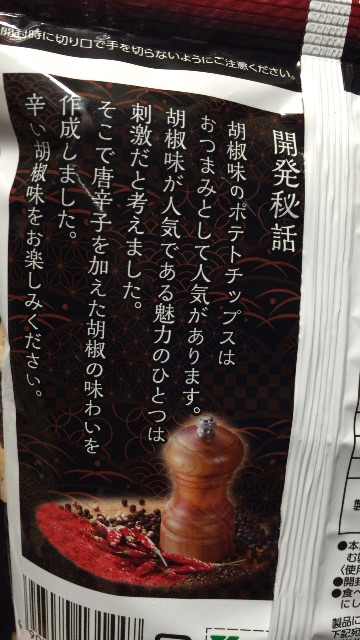 開封時に切り口で手を切らないようにご注意ください。
開発秘話
胡椒味のポテトチップスは
おつまみとして人気があります。
胡椒味が人気である魅力のひとつは
刺激だと考えました。
そこで唐辛子を加えた胡椒の味わいを
作成しました。
辛い胡椒味をお楽しみください。
製
●本
む製
〈使用
●開封
●食べ
にし
製品に